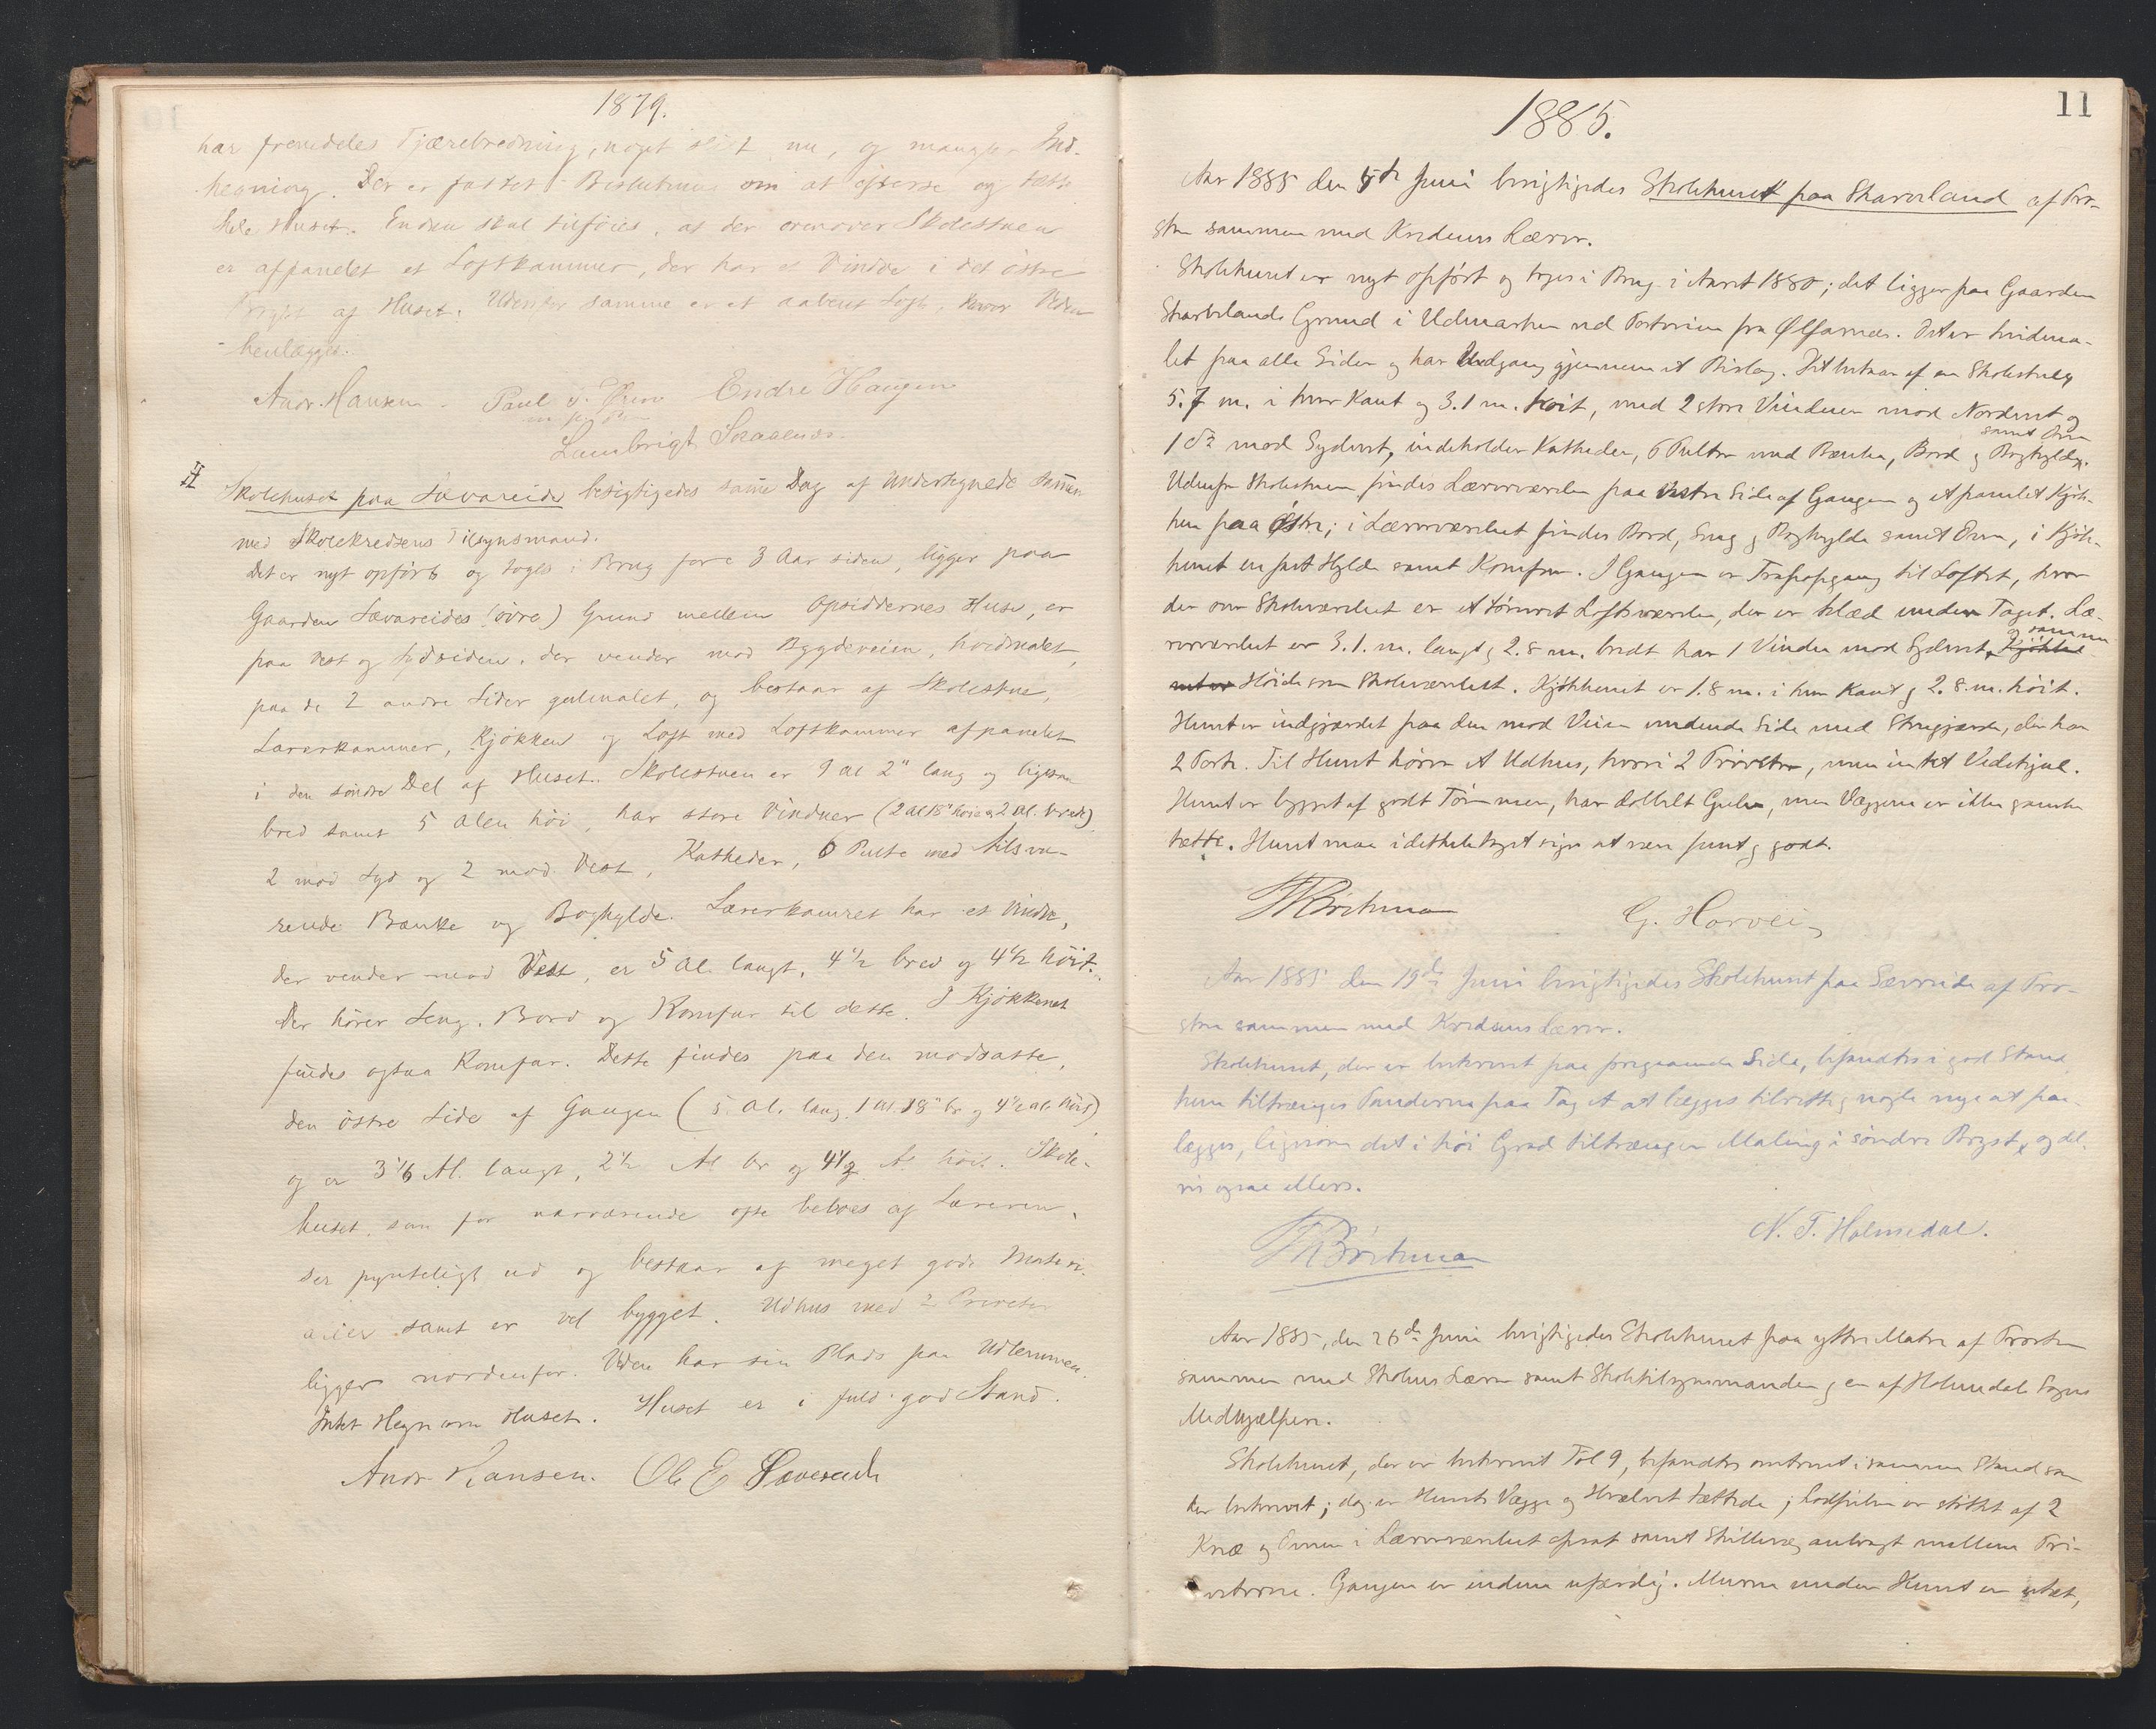 1879.
har fremdeles Tjærebredning, noget slidt nu, og mangler Ind-
hegning. Der er fattet Beslutning om at efterse og tætte
hele Huset. Endnu skal tilføies, at der ovenover Skolestuen
er afpanelet et Loftkammer, der har et Vindve i det östre
Bryst af Huset. Udenfor samme er et aabent Loft, hvor Veden
henlægges.
Andr. Hansen. Paul J. Endre Haugen
Lambrigt
Skolehuset paa Sævareide besigtigedes samme Dag af Undertegnede sammen
med Skolekredsens Tilsynsmand.
Det er nyt opført og toges i Brug for c 3 Aar siden, ligger paa
Gaarden Sævareides (övre) Grund mellem Opsiddernes Huse, er
paa Vest og Sydsiden, der vender mod Bygdeveien, hvidmalet,
paa de 2 andre Sider gulmalet, og bestaar af Skolestue,
Lærerkammer, Kjökken og Loft med Loftkammer afpanelet
i den söndre Del af Huset. Skolestuen er 9 Al 2" lang og ligesaa
bred samt 5 Alen höi, har store Vinduer (2 Al 18" höie og 2 Al. brede)
2 mod Syd og 2 mod Vest, Katheder, 6 Pulte med tilsva-
rende Bænke og Boghylde. Lærerkamret har et Vindve,
der vender mod Vest, er 5 Al. langt, 4 1/2 bred og 4 1/2 höit.
Der hörer Seng, Bord og Komfur til dette. I Kjökkenet
findes ogsaa Komfur. Dette findes paa den modsatte,
den östre Side af Gangen (5 Al. lang, 1 Al. 18" br og 4 1/2 al. höi)
og er 3 1/6 Al. langt, 2 1/2 Al br og 4 1/2 Al höit. Skole-
huset, som for nærværende ofte beboes af Læreren,
ser pynteligt ud og bestaar af meget gode Materi-
alier samt er vel bygget. Udhus med 2 Priveter
ligger nordenfor. Veden har sin Plads paa Udlemmen.
Intet Hegn om Huset. Huset er i fuld god Stand.
Andr Hansen. Ole E Sævereide
11
1885.
Aar 1885 den 5te Juni besigtigedes Skolehuset paa Skarveland af Præ-
sten sammen med Kredsens Lærer.
Skolehuset er nyt opført og toges i Brug i Aaret 1880; det ligger paa Gaarden
Skarvelands Grund i Udmarken ved Postveien fra Ølfarnæs. Det er hvidma-
let paa alle Sider og har Udgang gjennem et Bislag. Det bestaar af en Skolestue,
5.7 m. i hver Kant og 3.1 m. höit, med 2 store Vinduer mod Nordvest og
1 do mod Sydvest, indeholder Katheder, 6 Pulter med Bænke, Bord og Boghylde, samt Ovn
Udenfor Skolestuen findes Lærerværelse paa vestre Side af Gangen og et panelet Kjök-
ken paa östre; i Lærerværelset findes Bord, Seng og Boghylde samt Ovn, i Kjök-
kenet en fast Hylde samt Komfur. I Gangen er Trapopgang til Loftet, hvor
der over Skoleværelset er et tömret Loftsværelse, der er klæd under Taget. Læ-
rerværelset er 3.1. m. langt og 2.8 m. bredt har 1 Vindu mod Sydvest, samme Kjökke-
net er Höide som Skoleværelset. Kjökkenet er 1.8 m. i hver Kant og 2.8. m. höit.
Huset er indgjærdet paa den mod Veien vendende Side med Stengjærde, der har
2 Porte. Til Huset hörer et Udhus, hvori 2 Priveter, men intet Vedskjul.
Huset er bygget af godt Tömmer, har dobbelt Gulv, men Væggene er ikke ganske
tætte. Huset maa i det hele taget siges at være sundt og godt.
G. Horvei
Aar 1885 den 19de Juni besigtigedes Skolehuset paa Sævereide af Præ-
sten sammen med Kredsens Lærer.
Skolehuset, der er beskrevet paa foregaaende Side, befandtes i god Stand,
kun tiltrænges Panderne paa Taget at lægges tilrette og nogle nye at paa-
lægges, ligesom det i höi Grad tiltrænger Maling i söndre Bryst, og del-
vis ogsaa ellers.
N. T. Holmedal.
Aar 1885, den 26de Juni besigtigedes Skolehuset paa yttre Matre af Præsten
sammen med Skolens Lærer samt Skoletilsynsmanden og en af Holmedals Sogns
Medhjælpere.
Skolehuset, der er beskrevet Fol 9, befandtes omtrent i samme Stand som
der beskrevet; dog er Husets Vægge og Hvælvet tættede; er stöttet af 2
Knæ og Ovnen i Lærerværelset opsat samt Skillevæg anbragt mellem Pri-
veterne. Gangen er endnu ufærdig. Muren under Huset er utæt,